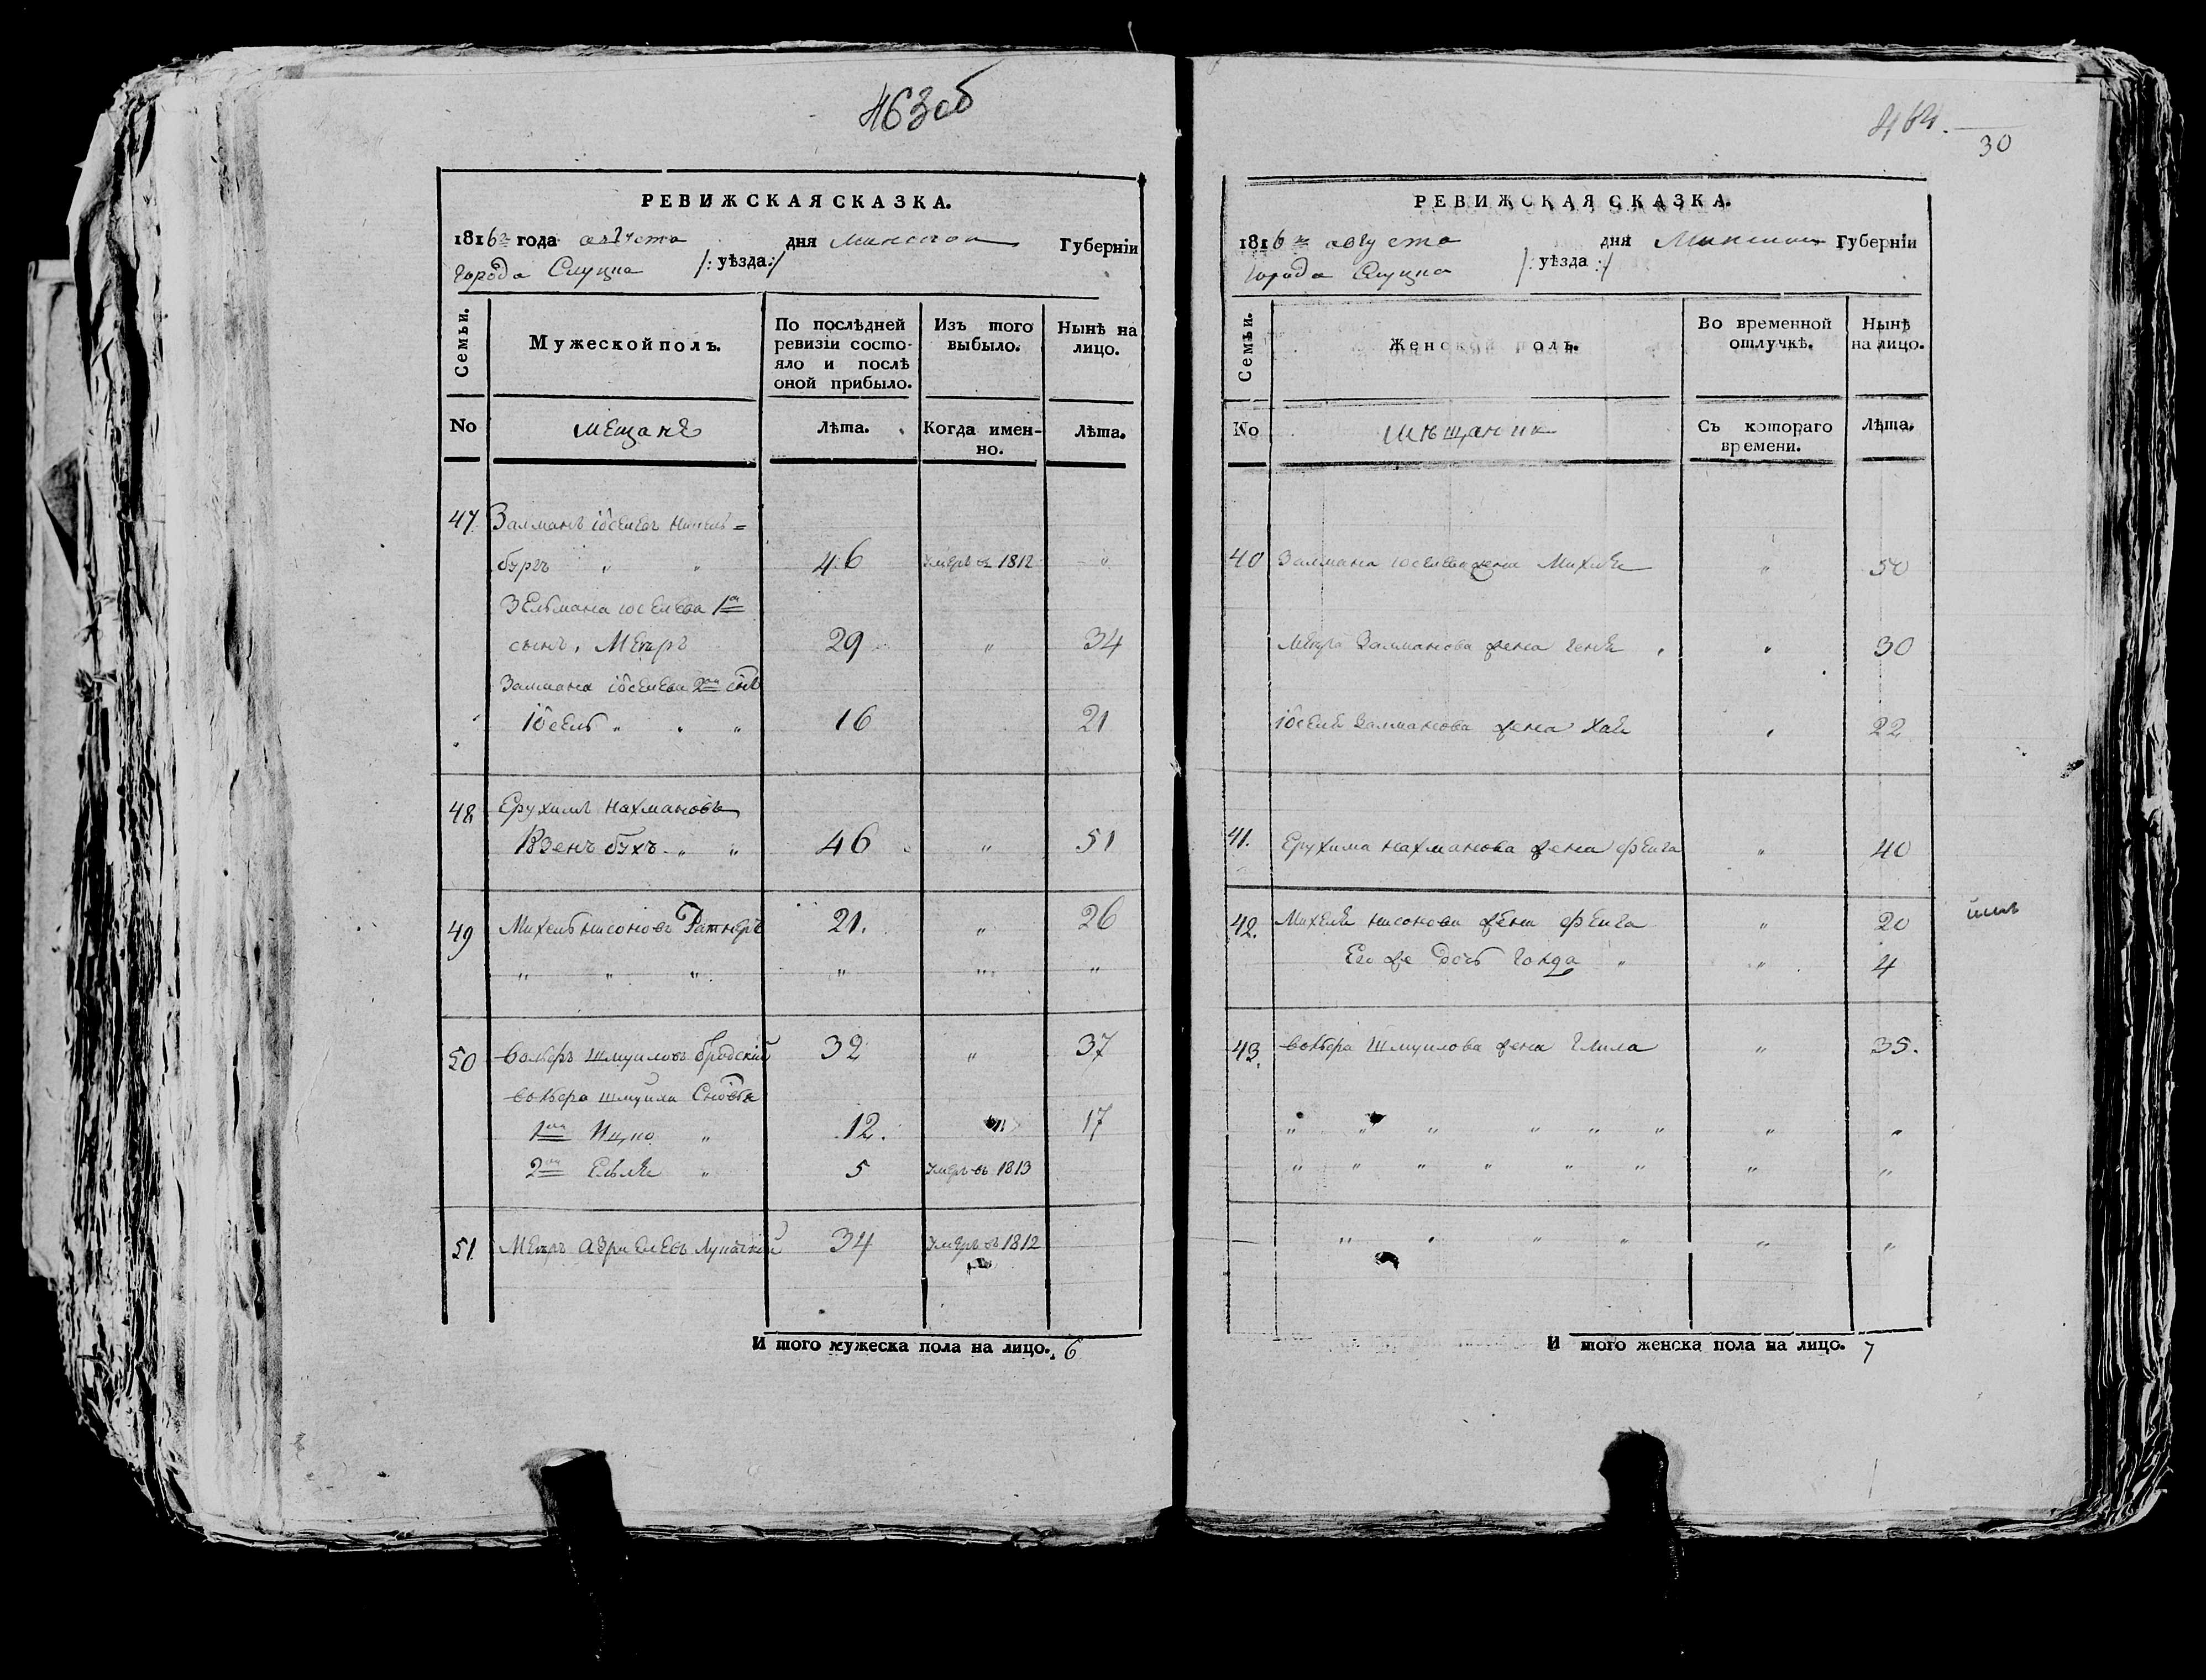 463об
РЕВИЖСКАЯ СКАЗКА.
1816го года августа дня Минской Губерніи
города Слуцка /: уѣзда :/
Семьи.
Мужеской полъ.
По послѣдней ревизіи состо-
яло и послѣ
оной прибыло.
Изъ того
выбыло.
Нынѣ на
лицо.
No
мещане
Лѣта.
Когда имен-
но.
Лѣта.
47 Залманъ іоселевъ
бургъ " " 46 умеръ въ 1812 "
Зелмана іоселева 1й
сынъ, Мееръ 29 " 34
Залмана іоселева 2й снъ
Іосель " " " 16 21
48 Ерухимъ Нахмановъ
бухъ " " 46 " 51
49 Михель нисоновъ Ратнеръ 21. " 26
" " " " " "
50 Шмуиловъ бродскій 32 " 37
Шмуила
1й Ицко " 12. " 17
2й " 5 умеръ въ 1813
51 Мееръ Азриелевъ 34 умеръ въ 1812
И того мужеска пола на лицо. 6
464.
30
РЕВИЖСКАЯ СКАЗКА.
1816го августа дня Минской Губерніи
города Слуцка /: уѣзда :/
Семьи.
Женской полъ.
Во временной
отлучкѣ.
Нынѣ
на лицо.
No
мѣщанки
Съ котораго
времени.
Лѣта.
40 Залмана іоселева жена Михля " 50
Меера Залманова жена Геня " " 30
іоселя Залманова жена Хая " 22
41. Ерухима нахманова жена фейга " 40
42. Михеля нисонова жена фейга " 20
Его же дочь " " 4
43. Шмуилова жена " 35.
" " " " " " " "
" " " " " " " "
" " " " " "
И того женска пола на лицо. 7